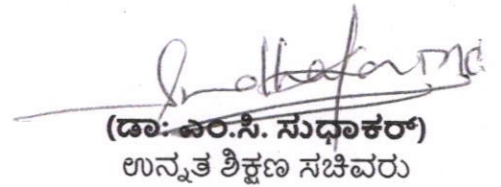 (ಡಾ: ಎಂ.ಸಿ. ಸುಧಾಕರ್)
ಉನ್ನತ ಶಿಕ್ಷಣ ಸಚಿವರು